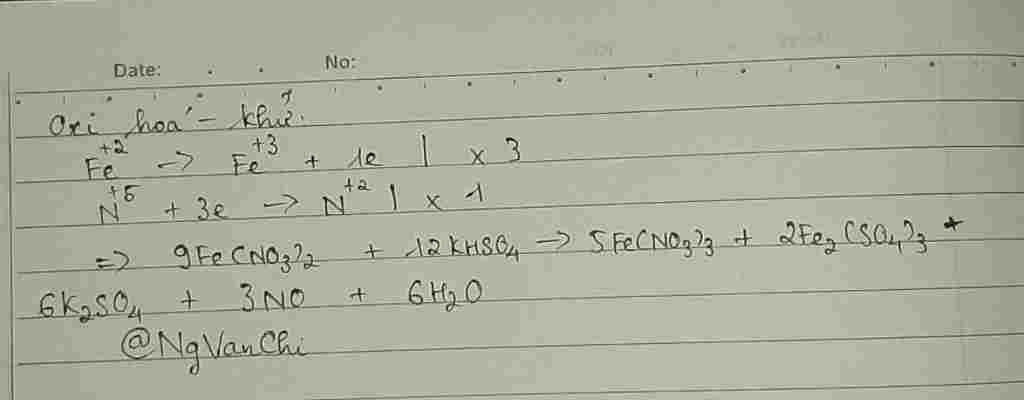 Date: . . No:
Oxi hoá - khử.
Fe⁺² -> Fe⁺³ + 1e | x 3
N⁺⁵ + 3e -> N⁺² | x 1
=> 9Fe(NO₃)₂ + 12KHSO₄ -> 5Fe(NO₃)₃ + 2Fe₂(SO₄)₃ +
6K₂SO₄ + 3NO + 6H₂O
@NgVanChi